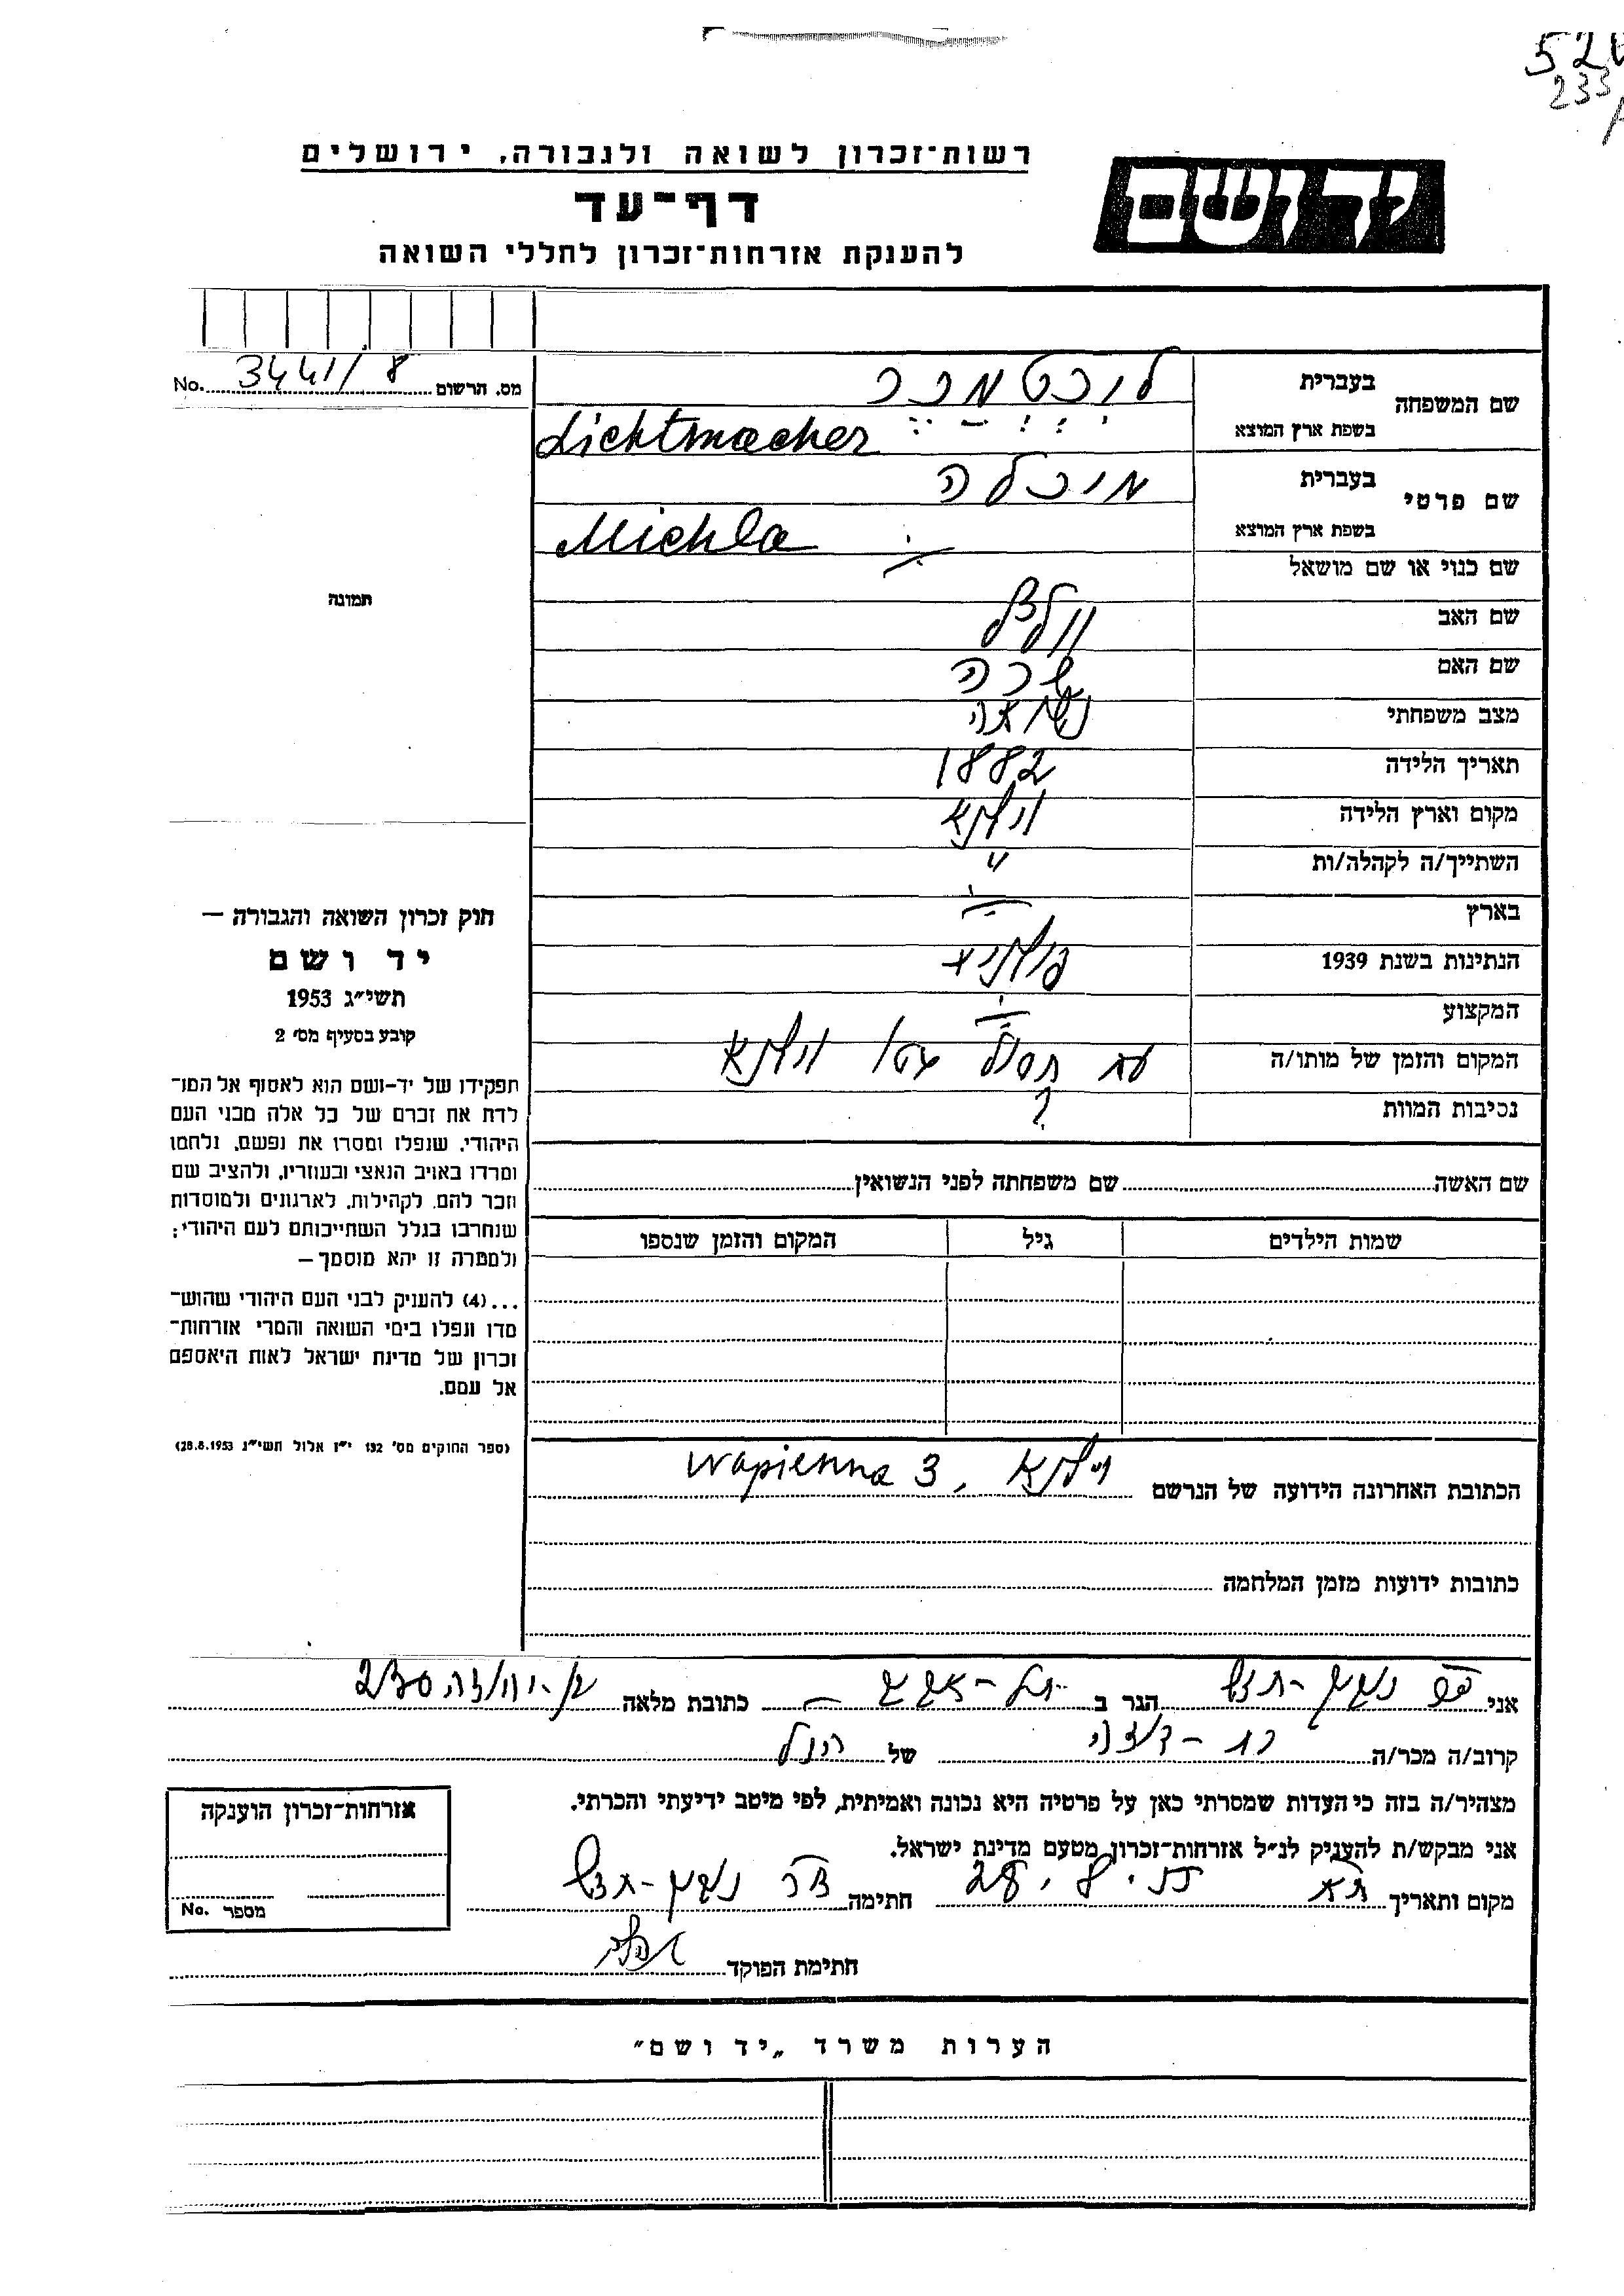 233
רשות־זכרון לשואה ולגבורה, ירושלים
יד ושם
דף־עד
להענקת אזרחות־זכרון לחללי השואה
שם המשפחה
בעברית ליכטמכר
בשפת ארץ המוצא Lichtmacher
מס. תרשום 3441/8 No.
שם פרטי
בעברית מיכלה
בשפת ארץ המוצא Michla
שם כנוי או שם מושאל
תמונה
שם האב
שם האם שרה
מצב משפחתי נשואה
תאריך הלידה 1882
מקום וארץ הלידה וילנא
השתייך/ה לקהלה/ות "
בארץ
הנתינות בשנת 1939 פולניה
המקצוע
המקום והזמן של מותו/ה עם חסול גטו וילנא
נסיבות המוות ?
חוק זכרון השואה והגבורה —
יד ושם
תשי"ג 1953
קובע בסעיף מס׳ 2
תפקידו של יד-ושם הוא לאסוף אל המו־
לדת את זכרם של כל אלה מבני העם
היהודי, שנפלו ומסרו את נפשם, נלחמו
ומרדו באויב הנאצי ובעוזריו, ולהציב שם
וזכר להם, לקהילות, לארגונים ולמוסדות
שנחרבו בגלל השתייכותם לעם היהודי;
ולמטרה זו יהא מוסמך—
...(4) להעניק לבני העם היהודי שהוש־
מדו ונפלו בימי השואה והמרי אזרחות־
זכרון של מדינת ישראל לאות היאספם
אל עמם.
(ספר החוקים מס׳ 132 י"ז אלול תשי"ג 28.8.1953)
שם האשה שם משפחתה לפני הנשואין
שמות הילדים גיל המקום והזמן שנספו
הכתובת האחרונה הידועה של הנרשם וילנא, Wapienna 3
כתובות ידועות מזמן המלחמה
אני הגר ב כתובת מלאה
קרוב/ה מכר/ה בת-דודה של הנ"ל
מצהיר/ה בזה כי העדות שמסרתי כאן על פרטיה היא נכונה ואמיתית, לפי מיטב ידיעתי והכרתי.
אני מבקש/ת להעניק לנ"ל אזרחות־זכרון מטעם מדינת ישראל.
מקום ותאריך חתימה
חתימת הפוקד
אזרחות־זכרון הוענקה
מספר No.
הערות משרד „יד ושם"